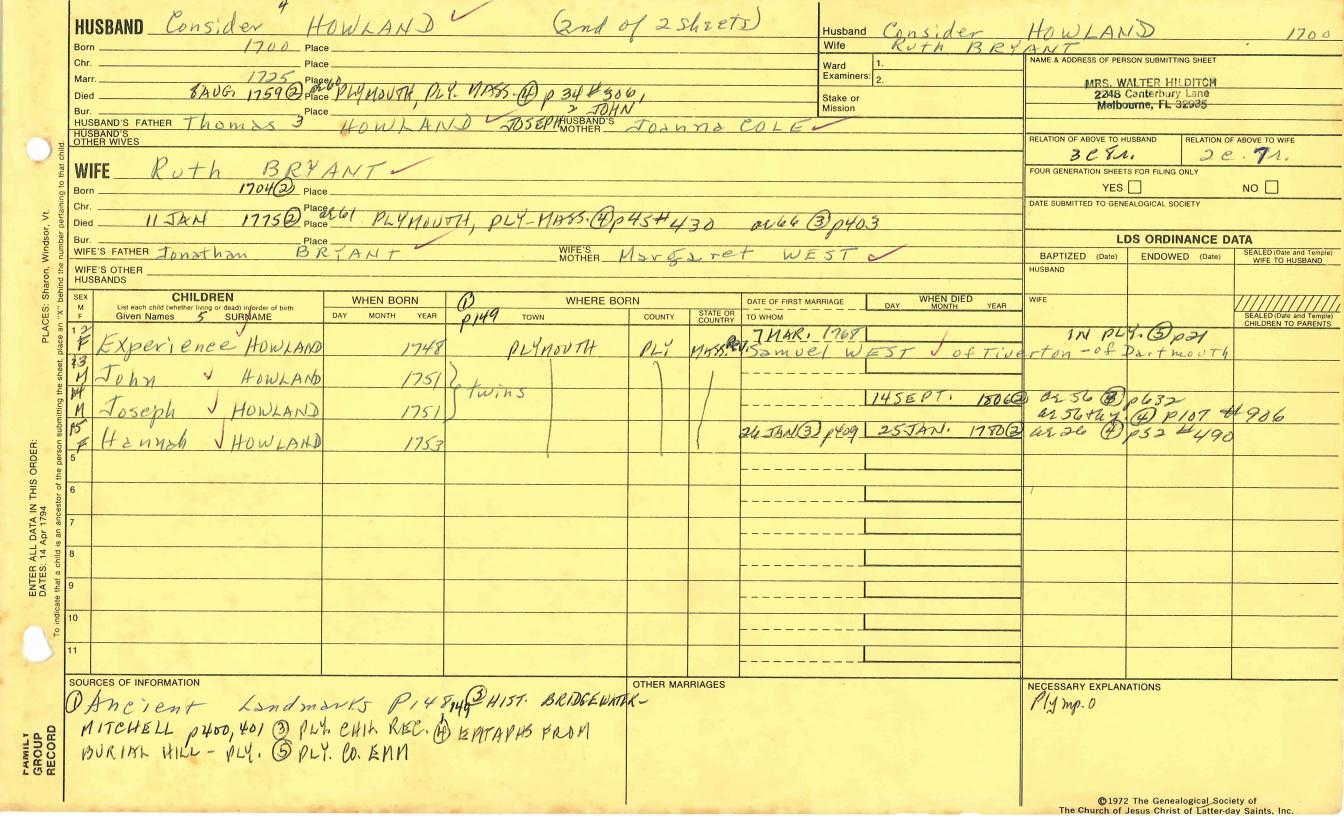 4
HUSBAND Consider HOWLAND (2nd of 2 sheets)
Born 1700 Place
Chr. Place
Marr. 1725 Place
Died 8 AUG. 1759 (2) Place PLYMOUTH, PLY. MASS. (4) p 34 #306,
Bur. Place 2 JOHN
HUSBAND'S FATHER Thomas 3 HOWLAND JOSEPH HUSBAND'S MOTHER Joanna COLE
HUSBAND'S OTHER WIVES
WIFE Ruth BRYANT
Born 1704 (2) Place
Chr. Place
Died 11 JAN 1775 (2) Place PLYMOUTH, PLY-MASS. (4) p45 #430 ae 66 (3) p403
Bur. Place
WIFE'S FATHER Jonathan BRYANT WIFE'S MOTHER Margaret WEST
WIFE'S OTHER HUSBANDS
Husband Consider HOWLAND 1700
Wife Ruth BRYANT
Ward 1.
Examiners: 2.
Stake or
Mission
NAME & ADDRESS OF PERSON SUBMITTING SHEET
MRS. WALTER HILDITCH
2248 Canterbury Lane
Melbourne, FL 32935
RELATION OF ABOVE TO HUSBAND RELATION OF ABOVE TO WIFE
3c 8r. 2c. 7r.
FOUR GENERATION SHEETS FOR FILING ONLY
YES NO
DATE SUBMITTED TO GENEALOGICAL SOCIETY
LDS ORDINANCE DATA
BAPTIZED (Date) ENDOWED (Date) SEALED (Date and Temple) WIFE TO HUSBAND
HUSBAND
WIFE
SEALED (Date and Temple) CHILDREN TO PARENTS
SEX M F
CHILDREN
List each child (whether living or dead) in order of birth
Given Names 5 SURNAME
WHEN BORN
DAY MONTH YEAR
(1) p149
WHERE BORN
TOWN COUNTY STATE OR COUNTRY
DATE OF FIRST MARRIAGE
TO WHOM
WHEN DIED
DAY MONTH YEAR
12 F Experience HOWLAND 1748 PLYMOUTH PLY MASS. 7 MAR. 1768 IN PLY. (5) p21
Samuel WEST of Tiverton - of Dartmouth
13 M John HOWLAND 1751 } twins
14 M Joseph HOWLAND 1751 14 SEPT. 1806 (2) ae 56 (3) p632
ae 56 (4) p107 #906
15 F Hannah HOWLAND 1753 26 JAN (3) p409 25 JAN. 1780 (2) ae 26 (4) p52 #490
5
6
7
8
9
10
11
SOURCES OF INFORMATION
(1) Ancient Landmarks P 148, 149 HIST. BRIDGEWATER-
MITCHELL p400, 401 (3) PLY. CHH. REC. (4) EPITAPHS FROM
BURIAL HILL - PLY. (5) PLY. CO. EMM
OTHER MARRIAGES
NECESSARY EXPLANATIONS
©1972 The Genealogical Society of
The Church of Jesus Christ of Latter-day Saints, Inc.
PLACES: Sharon, Windsor, Vt.
ENTER ALL DATA IN THIS ORDER:
DATES: 14 Apr 1794
To indicate that a child is an ancestor of the person submitting the sheet, place an "X" behind the number pertaining to that child.
FAMILY
GROUP
RECORD